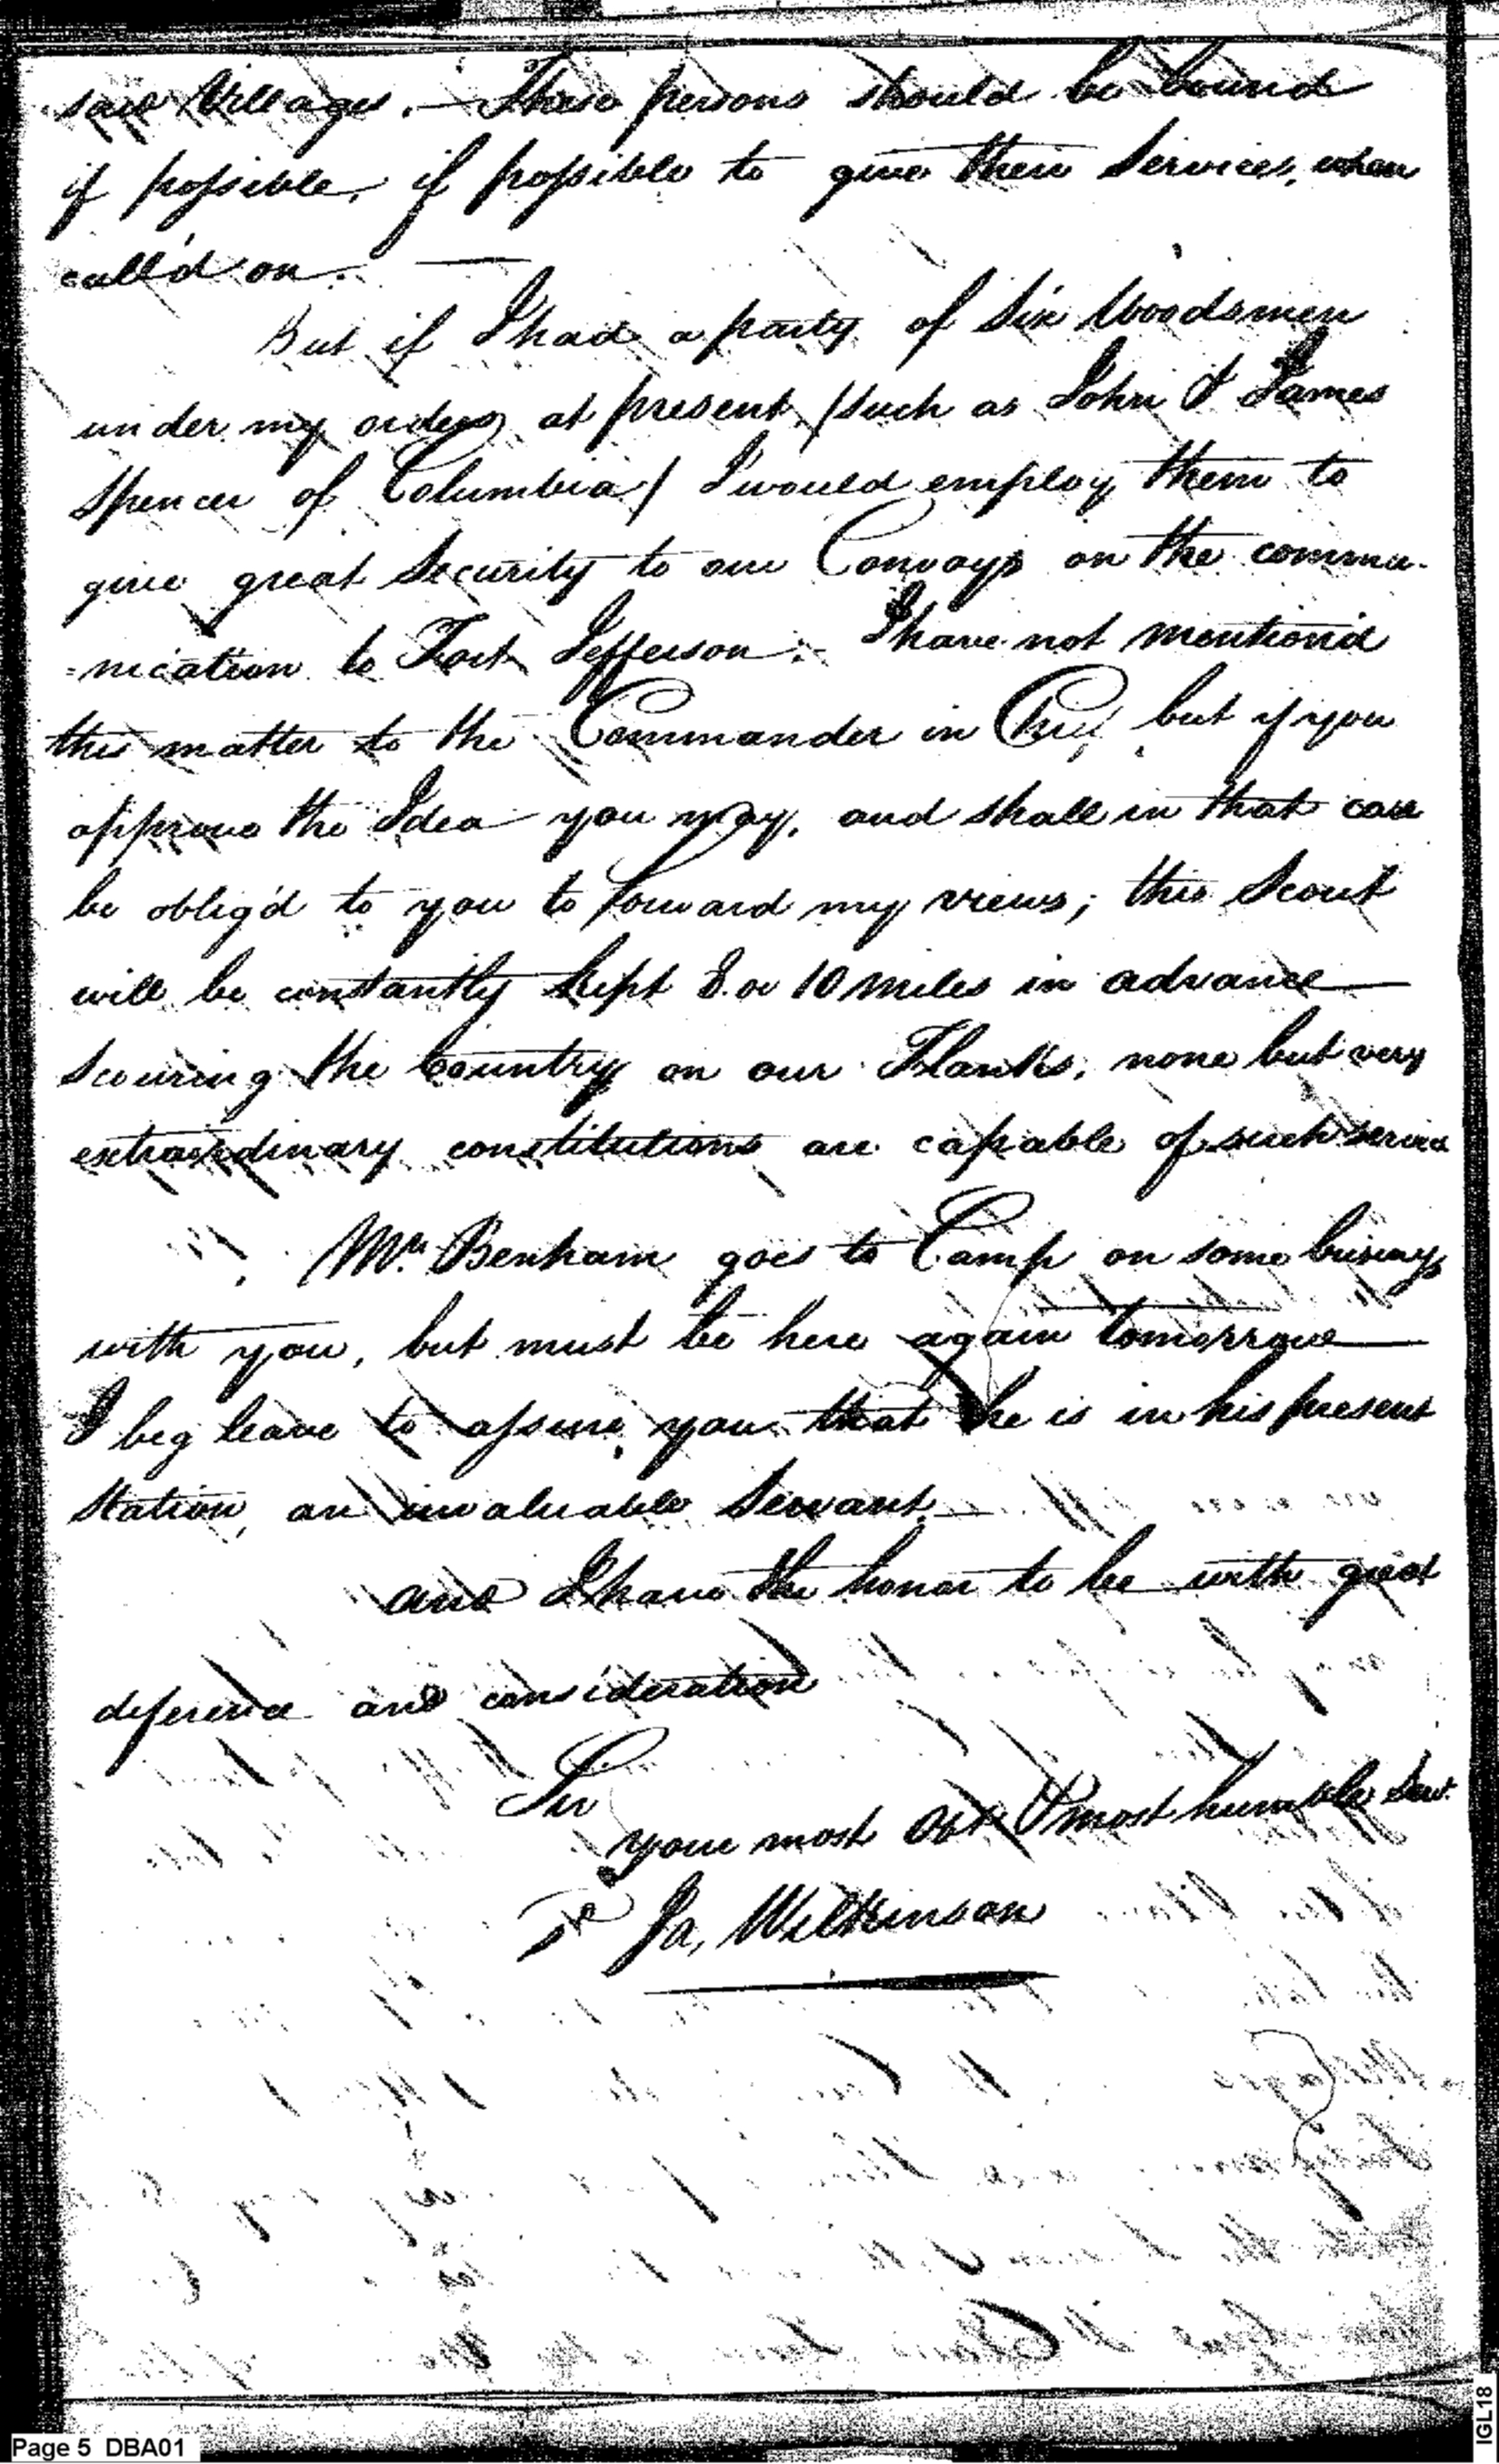 said Villages. — These persons should be bound
if possible, if possible to give their Services, when
call'd on. —
But if I had a party of Six Woodsmen
under my orders at present, /such as John & James
Spencer of Columbia/ I would employ them to
give great Security to our Convoys on the commu-
=nication to Fort Jefferson. I have not mention'd
this matter to the Commander in Chief, but if you
approve the Idea you may, and shall in that case
be oblig'd to you to forward my views; this Scout
will be constantly kept 8 or 10 miles in advance
Scouring the Country on our Flanks, none but very
extraordinary constitutions are capable of such service
Mr. Benham goes to Camp on some business
with you, but must be here again tomorrow
I beg leave to assure you that he is in his present
Station, an invaluable Servant. —
and I have the honor to be with great
deference and consideration
Sir
your most Obt. & most humble Servt.
Ja, Wilkinson
Page 5 DBA01
IGL18